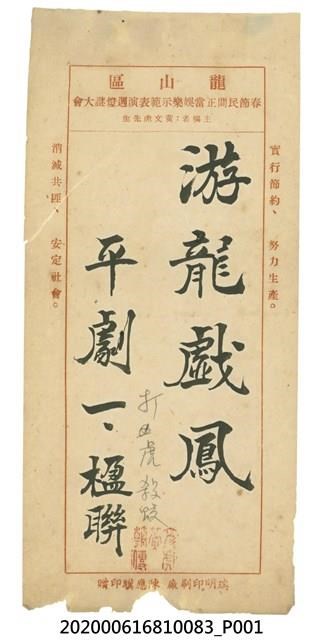 龍山區
春節民間正當娛樂示範表演週燈謎大會
主稿者：黃文虎先生
實行節約、努力生產。
游龍戲鳳
平劇一、楹聯
打西虎 殺蛟
消滅共匪、安定社會。
瑞明印刷廠 陳應騏印贈
202000616810083_P001